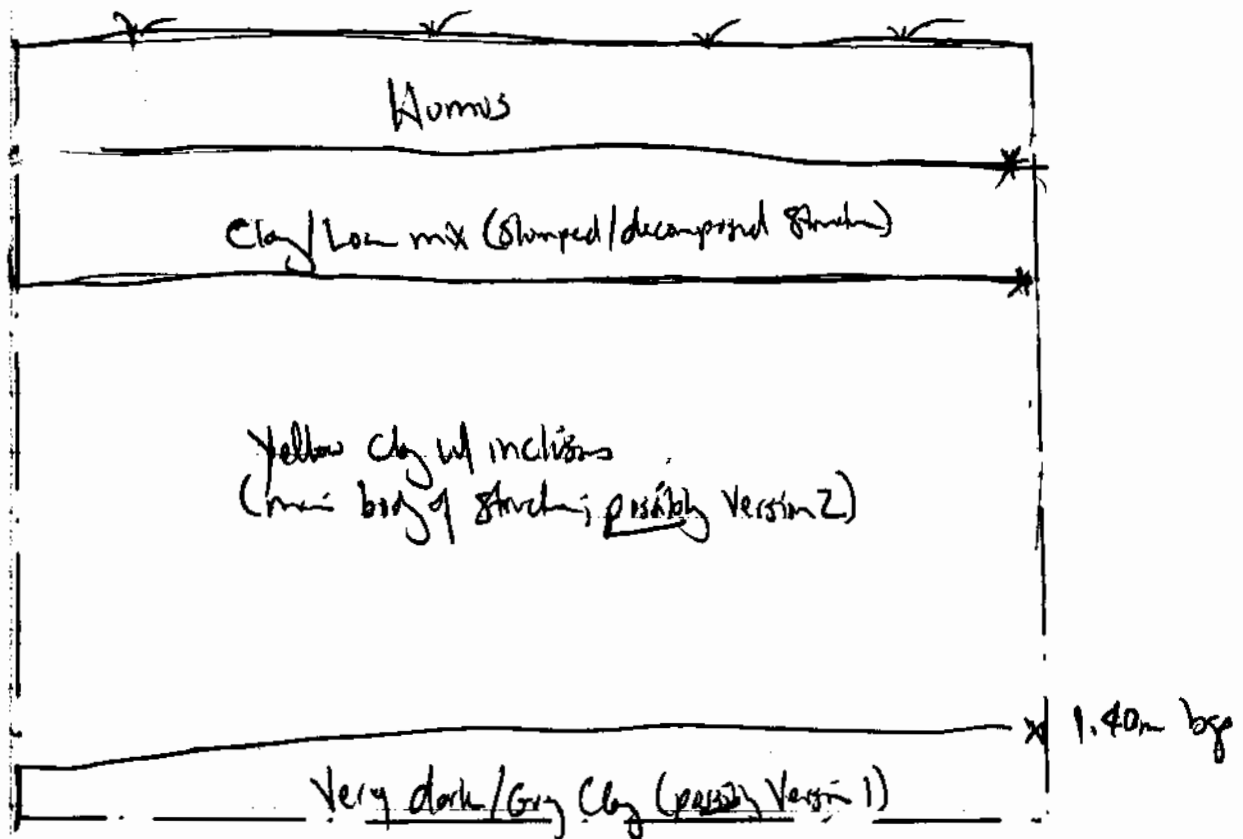 Humus
Clay/Loam mix (slumped/decomposed structure)
Yellow Clay w/ inclisions
(main body of structure; possibly Version 2)
1.40m bgs
Very dark/Grey Clay (possibly Version 1)